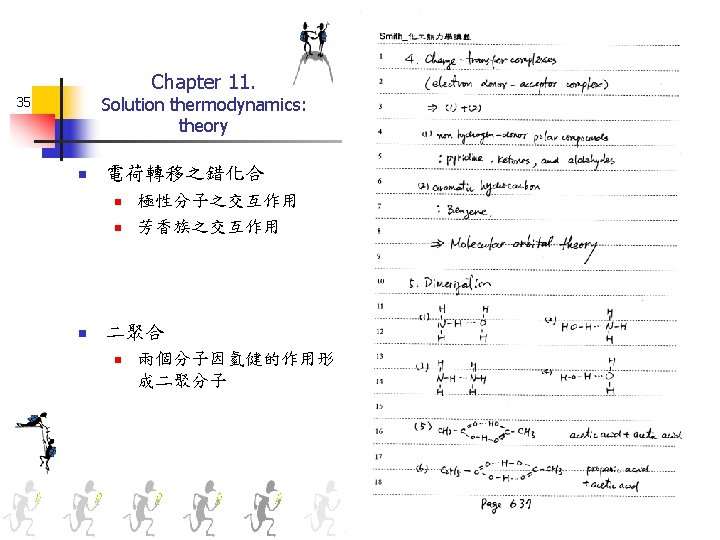 Chapter 11.
35
Solution thermodynamics:
theory
電荷轉移之錯化合
極性分子之交互作用
芳香族之交互作用
二聚合
兩個分子因氫健的作用形
成二聚分子
Smith_化工熱力學講義
1 4. Charge-transfer complexes
2 (electron donor-acceptor complex)
3 ⇒ (1)+(2)
4 (1) non hydrogen-donor polar compounds
5 : pyridine, ketones, and aldehydes
6 (2) aromatic hydrocarbon
7 : Benzene.
8 ⇒ Molecular orbital theory
9
10 5. Dimerization
11 H H H
12 (1) N-H···O (2) HO-H···N-H
H H H
13 H H H
14 (3) N-H···N-H (4) HO-H···O
H H H
15
16 (5) CH3-C O···HO O-H···O C-CH3 acetic acid + acetic acid
17
18 (6) C2H5-C O···H-O O-H···O C-CH3 propanic acid
+ acetic acid
Page 637